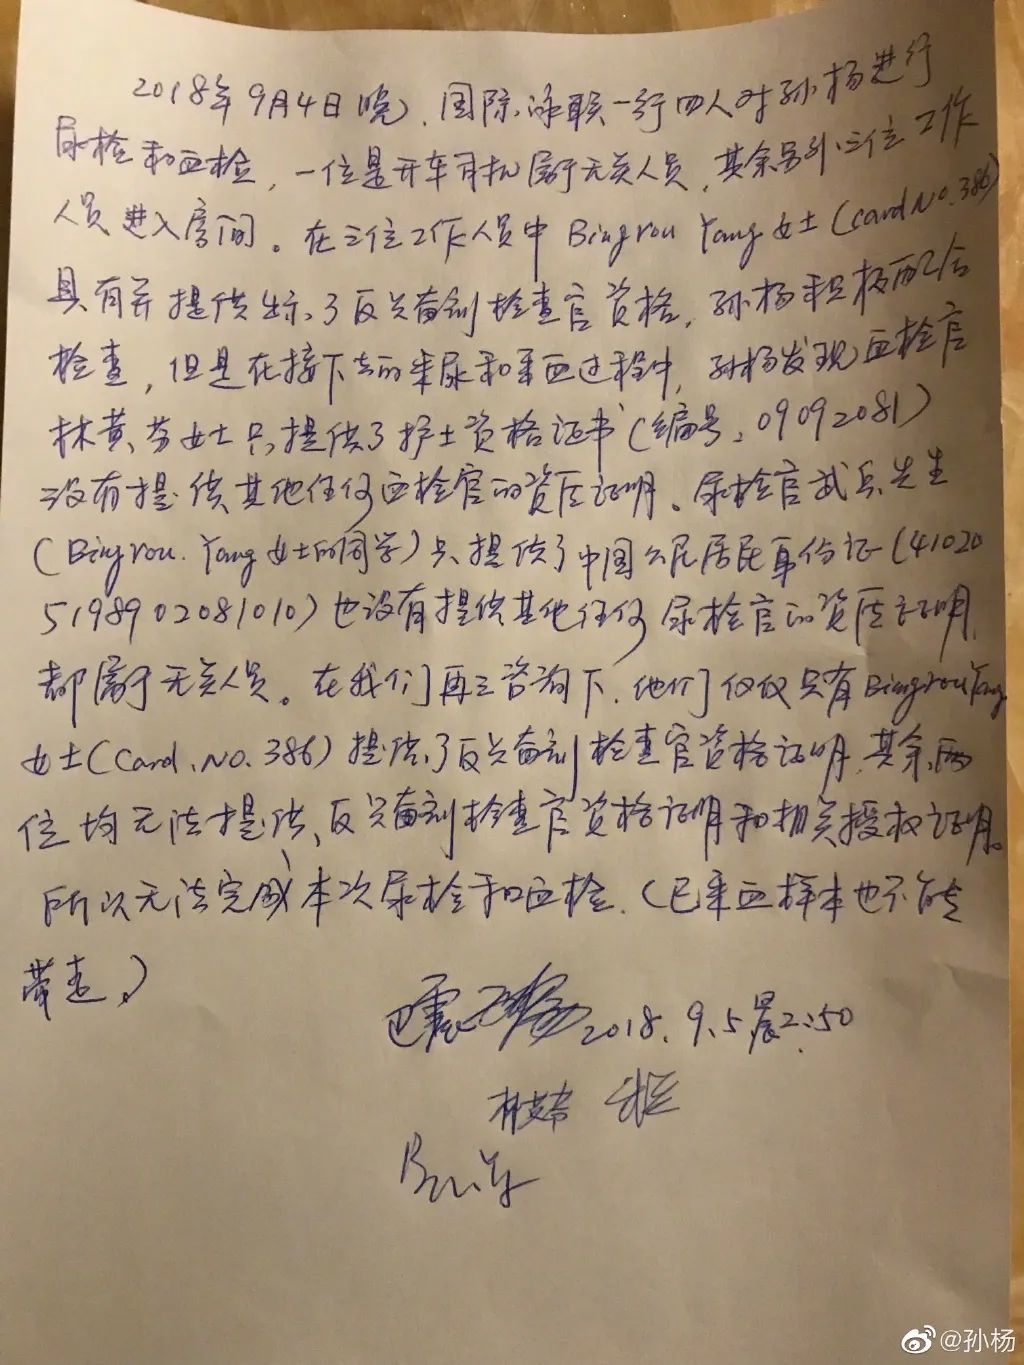 2018年9月4日晚、国际泳联一行四人对孙杨进行
尿检和血检，一位是开车司机属于无关人员，其余另外三位工作
人员进入房间。在三位工作人员中 Bingrou Yang 女士(Card NO.386)
具有并提供出示了反兴奋剂检查官资格，孙杨积极配合
检查，但是在接下去的采尿和采血过程中，孙杨发现血检官
林黄芬女士只提供了护士资格证书(编号：09092081)
没有提供其他任何血检官的资质证明。尿检官武兵先生
(Bingrou.Yang女士的同学)只提供了中国公民居民身份证(41020
5198902081010)也没有提供其他任何尿检官的资质证明，
都属于无关人员。在我们再三咨询下，他们仅仅只有Bingrou Yang
女士(Card.NO.386)提供了反兴奋剂检查官资格证明，其余两
位均无法提供反兴奋剂检查官资格证明和相关授权证明。
所以无法完成本次尿检和血检.(已采血样本也不能
带走.)
巴震 2018.9.5晨2:50
@孙杨